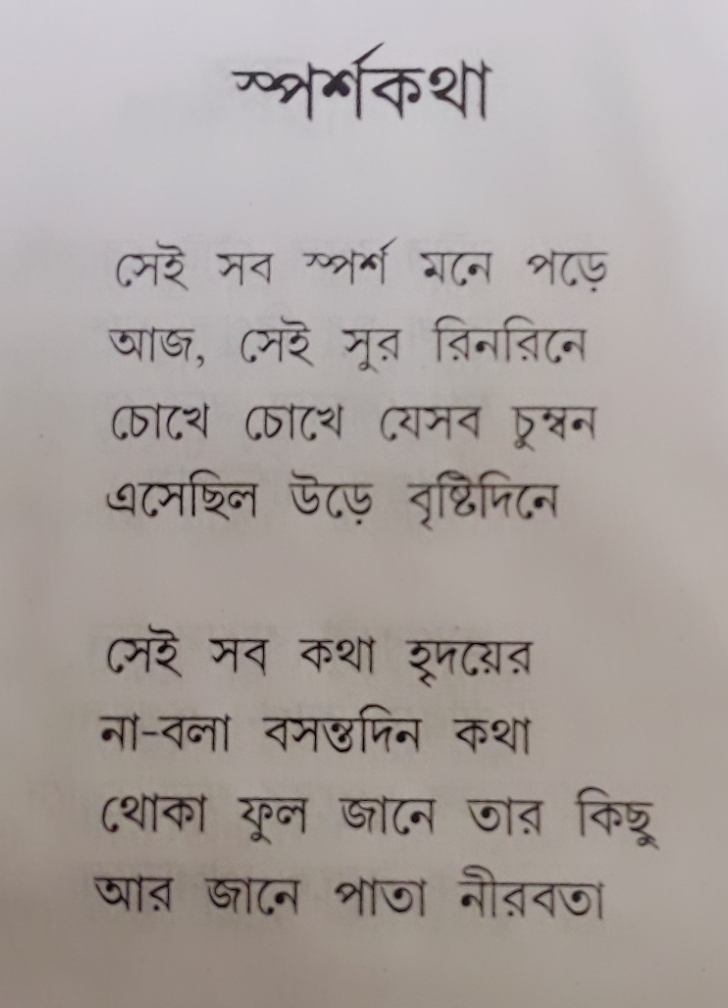 স্পর্শকথা
সেই সব স্পর্শ মনে পড়ে
আজ, সেই সুর রিনরিনে
চোখে চোখে যেসব চুম্বন
এসেছিল উড়ে বৃষ্টিদিনে
সেই সব কথা হৃদয়ের
না-বলা বসন্তদিন কথা
থোকা ফুল জানে তার কিছু
আর জানে পাতা নীরবতা